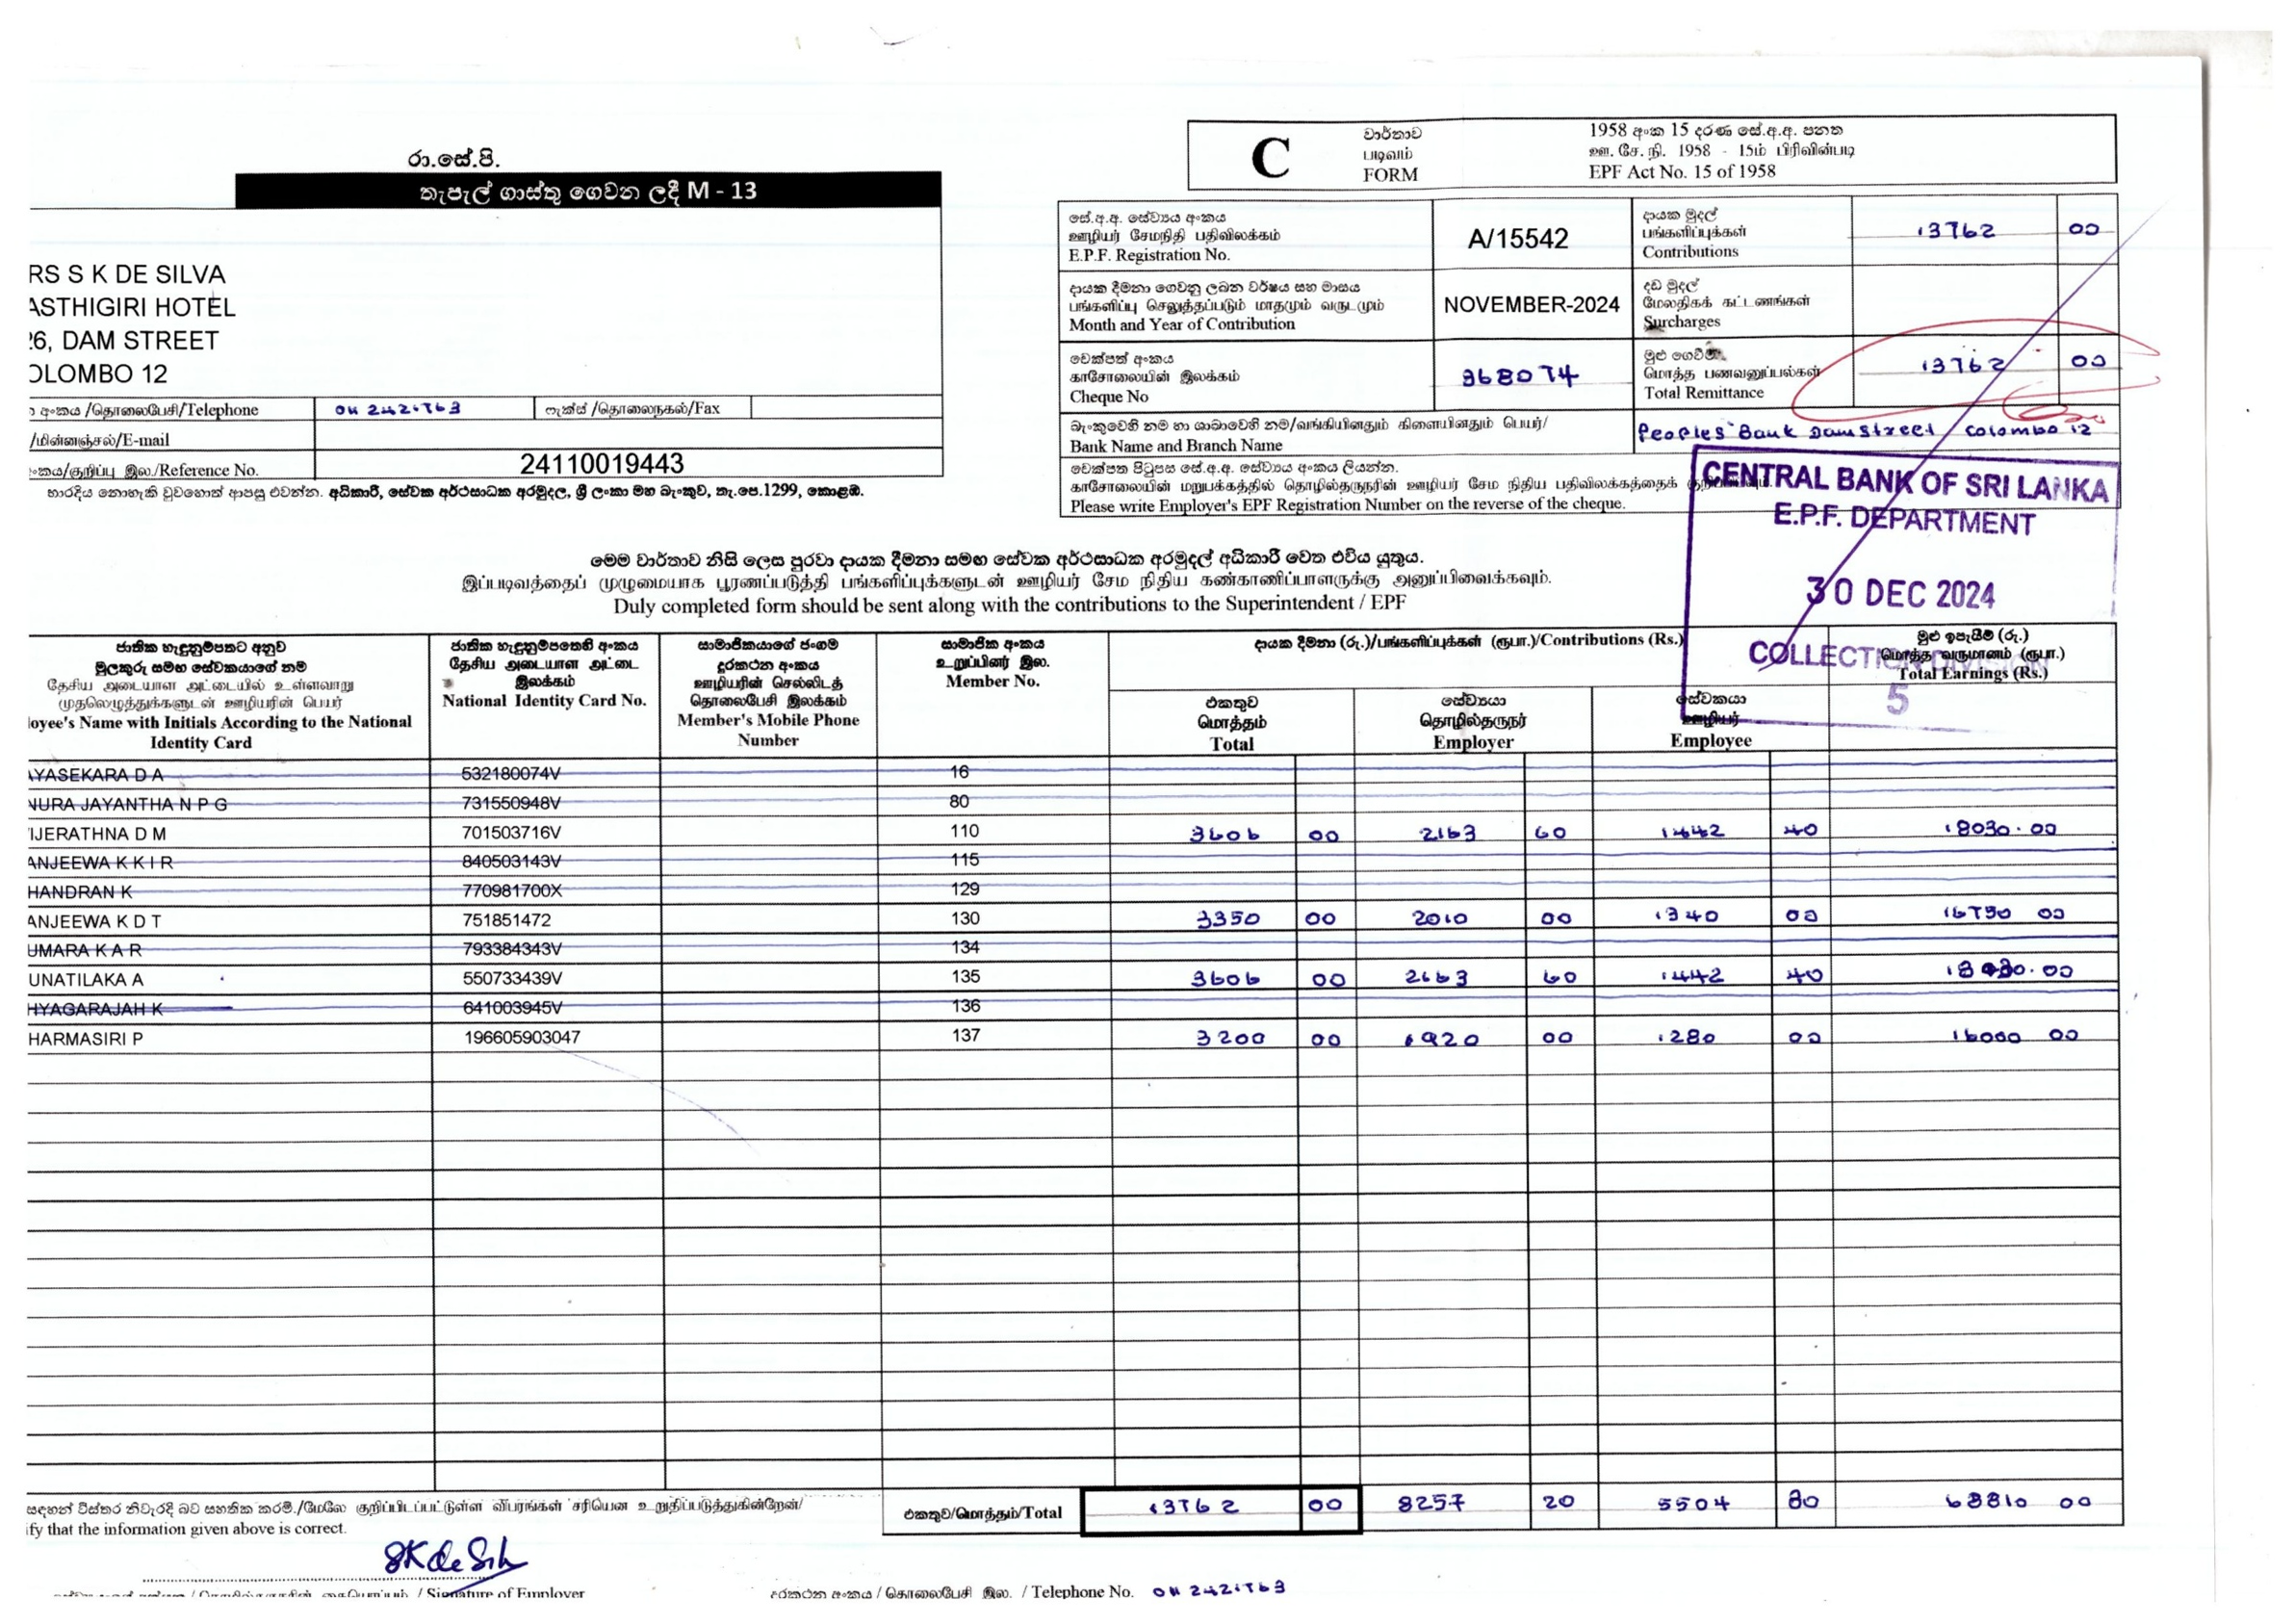 රා.සේ.පි.
තැපැල් ගාස්තු ගෙවන ලදී M - 13
RS S K DE SILVA
ASTHIGIRI HOTEL
26, DAM STREET
OLOMBO 12
අංකය /தொலைபேசி/Telephone 011 2421763 ෆැක්ස් /தொலைநகல்/Fax
/மின்னஞ்சல்/E-mail
අංකය/குறிப்பு இல./Reference No. 24110019443
භාරදිය නොහැකි වුවහොත් ආපසු එවන්න. අධිකාරී, සේවක අර්ථසාධක අරමුදල, ශ්‍රී ලංකා මහ බැංකුව, තැ.පෙ.1299, කොළඹ.
C
වාර්තාව
படிவம்
FORM
1958 අංක 15 දරණ සේ.අ.අ. පනත
ஊ. சே. நி. 1958 - 15ம் பிரிவின்படி
EPF Act No. 15 of 1958
සේ.අ.අ. සේව්‍යය අංකය
ஊழியர் சேமநிதி பதிவிலக்கம்
E.P.F. Registration No.
A/15542
දායක මුදල්
பங்களிப்புக்கள்
Contributions
13762 00
දායක දීමනා ගෙවනු ලබන වර්ෂය සහ මාසය
பங்களிப்பு செலுத்தப்படும் மாதமும் வருடமும்
Month and Year of Contribution
NOVEMBER-2024
දඩ මුදල්
மேலதிகக் கட்டணங்கள்
Surcharges
චෙක්පත් අංකය
காசோலையின் இலக்கம்
Cheque No
368074
මුළු ගෙවීම්
மொத்த பணவனுப்பல்கள்
Total Remittance
13762 00
බැංකුවෙහි නම හා ශාඛාවෙහි නම/வங்கியினதும் கிளையினதும் பெயர்/
Bank Name and Branch Name
Peoples' Bank Damstreet Colombo 12
චෙක්පත පිටුපස සේ.අ.අ. සේව්‍යය අංකය ලියන්න.
காசோலையின் மறுபக்கத்தில் தொழில்தருநரின் ஊழியர் சேம நிதிய பதிவிலக்கத்தைக்
Please write Employer's EPF Registration Number on the reverse of the cheque.
CENTRAL BANK OF SRI LANKA
E.P.F. DEPARTMENT
30 DEC 2024
COLLECTION DIVISION
5
මෙම වාර්තාව නිසි ලෙස පුරවා දායක දීමනා සමඟ සේවක අර්ථසාධක අරමුදල් අධිකාරී වෙත එවිය යුතුය.
இப்படிவத்தைப் முழுமையாக பூரணப்படுத்தி பங்களிப்புக்களுடன் ஊழியர் சேம நிதிய கண்காணிப்பாளருக்கு அனுப்பிவைக்கவும்.
Duly completed form should be sent along with the contributions to the Superintendent / EPF
ජාතික හැඳුනුම්පතට අනුව
මුලකුරු සමඟ සේවකයාගේ නම
தேசிய அடையாள அட்டையில் உள்ளவாறு
முதலெழுத்துக்களுடன் ஊழியரின் பெயர்
loyee's Name with Initials According to the National
Identity Card
ජාතික හැඳුනුම්පතෙහි අංකය
தேசிய அடையாள அட்டை
இலக்கம்
National Identity Card No.
සාමාජිකයාගේ ජංගම
දුරකථන අංකය
ஊழியரின் செல்லிடத்
தொலைபேசி இலக்கம்
Member's Mobile Phone
Number
සාමාජික අංකය
உறுப்பினர் இல.
Member No.
දායක දීමනා (රු.)/பங்களிப்புக்கள் (ரூபா.)/Contributions (Rs.)
එකතුව
மொத்தம்
Total
සේව්‍යයා
தொழில்தருநர்
Employer
සේවකයා
ஊழியர்
Employee
මුළු ඉපැයීම් (රු.)
மொத்த வருமானம் (ரூபா.)
Total Earnings (Rs.)
AYASEKARA D A 532180074V 16
NURA JAYANTHA N P G 731550948V 80
IJERATHNA D M 701503716V 110 3606 00 2163 60 1442 40 18030.00
ANJEEWA K K I R 840503143V 115
HANDRAN K 770981700X 129
ANJEEWA K D T 751851472 130 3350 00 2010 00 1340 00 16750 00
UMARA K A R 793384343V 134
UNATILAKA A 550733439V 135 3606 00 2163 60 1442 40 18030.00
HYAGARAJAH K 641003945V 136
HARMASIRI P 196605903047 137 3200 00 1920 00 1280 00 16000 00
සඳහන් විස්තර නිවැරදි බව සහතික කරමි./மேலே குறிப்பிடப்பட்டுள்ள விபரங்கள் சரியென உறுதிப்படுத்துகின்றேன்/
ify that the information given above is correct.
එකතුව/மொத்தம்/Total 13762 00 8257 20 5504 80 68810 00
SK de Silva
/ Signature of Employer
දුරකථන අංකය / தொலைபேசி இல. / Telephone No. 011 2421763